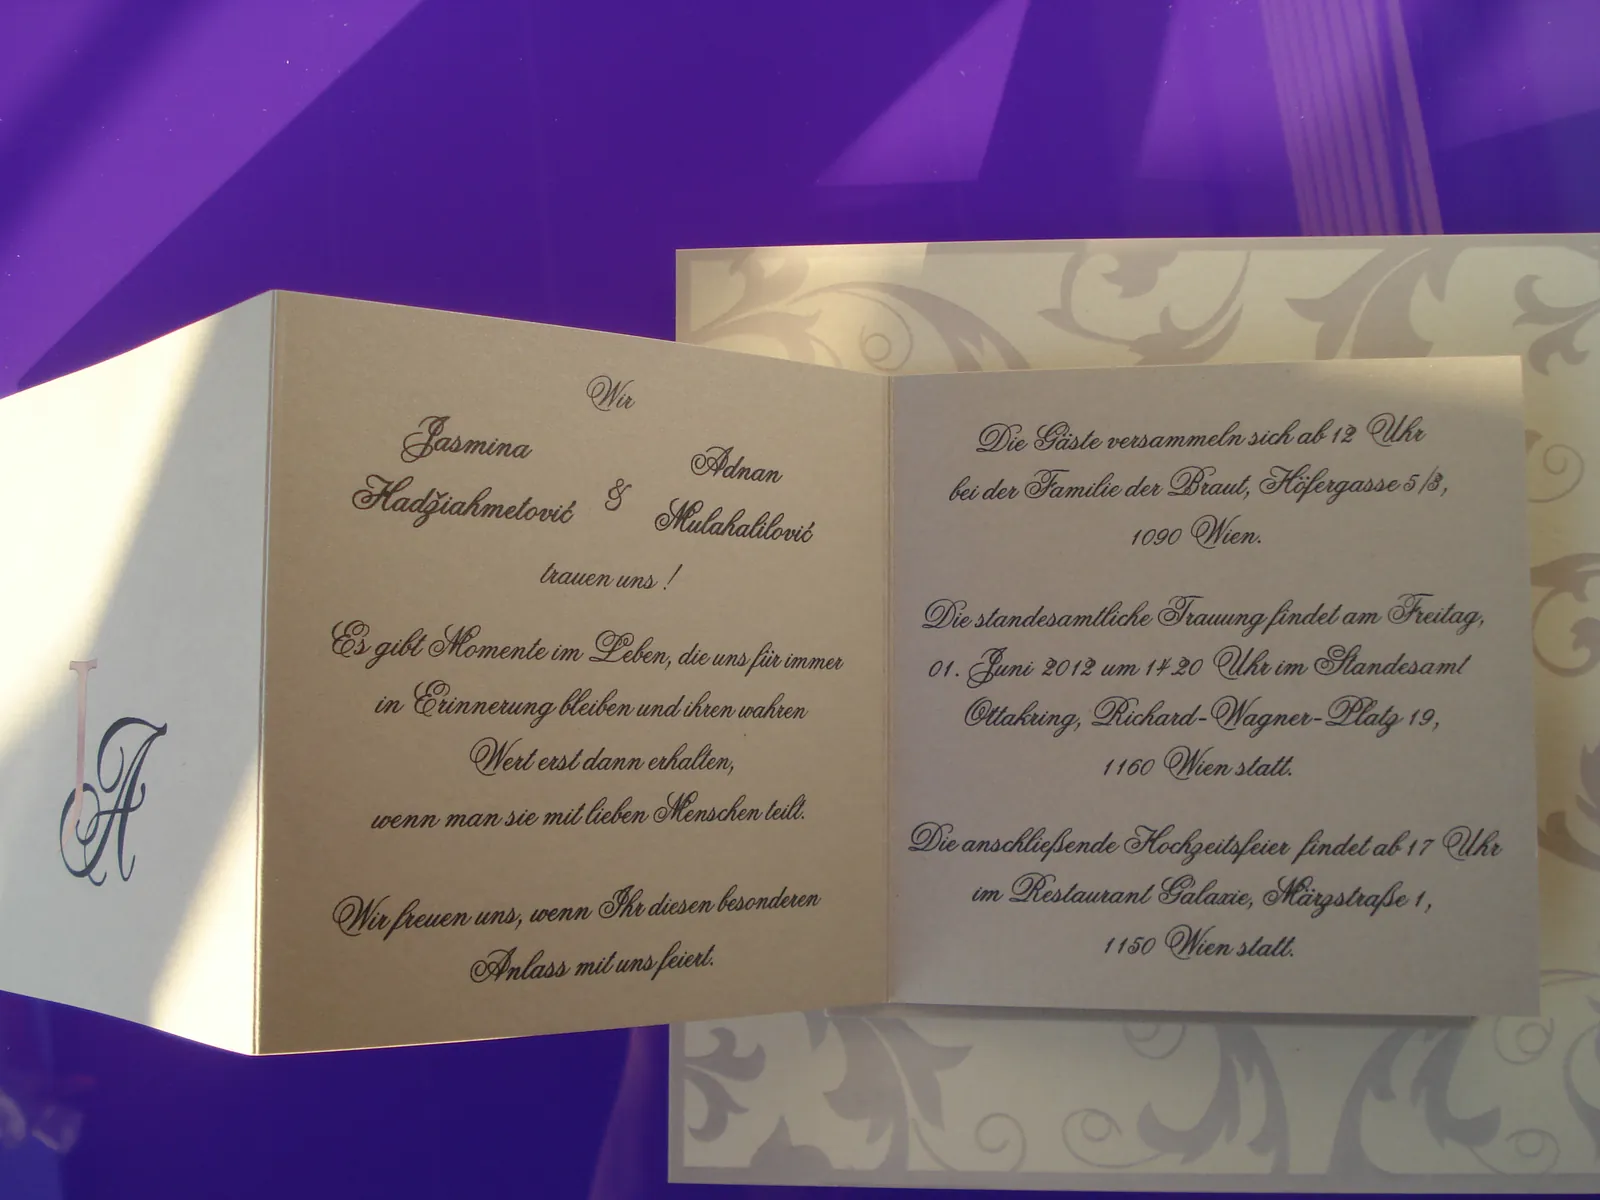 Wir
Jasmina
Hadžiahmetović
&
Adnan
Mulahalilović
trauen uns !
Es gibt Momente im Leben, die uns für immer
in Erinnerung bleiben und ihren wahren
Wert erst dann erhalten,
wenn man sie mit lieben Menschen teilt.
Wir freuen uns, wenn Ihr diesen besonderen
Anlass mit uns feiert.
Die Gäste versammeln sich ab 12 Uhr
bei der Familie der Braut, Höfergasse 5/3,
1090 Wien.
Die standesamtliche Trauung findet am Freitag,
01. Juni 2012 um 14.20 Uhr im Standesamt
Ottakring, Richard-Wagner-Platz 19,
1160 Wien statt.
Die anschließende Hochzeitsfeier findet ab 17 Uhr
im Restaurant Galaxie, Märzstraße 1,
1150 Wien statt.
J
A